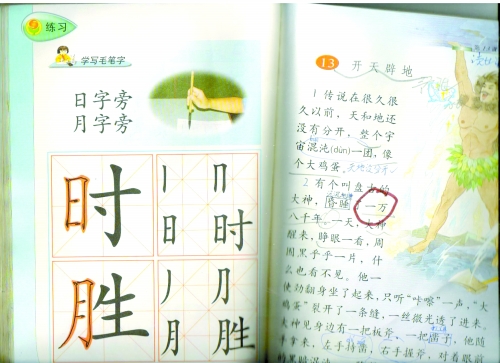 练习
学写毛笔字
日字旁
月字旁
时
胜
13 开天辟地
1 传说在很久很
久以前，天和地还
没有分开，整个宇
宙混沌(dùn)一团，像
个大鸡蛋。
2 有个叫盘古的
大神，昏睡了一万
八千年。一天，大神
醒来，睁眼一看，周
围黑乎乎一片，什
么也看不见。他一
使劲翻身坐了起来，只听“咔嚓”一声，“大
鸡蛋”裂开了一条缝，一丝微光透了进来。
大神见身边有一把板斧，一把凿子，他随
手拿来，左手持凿，右手握斧，对着眼前